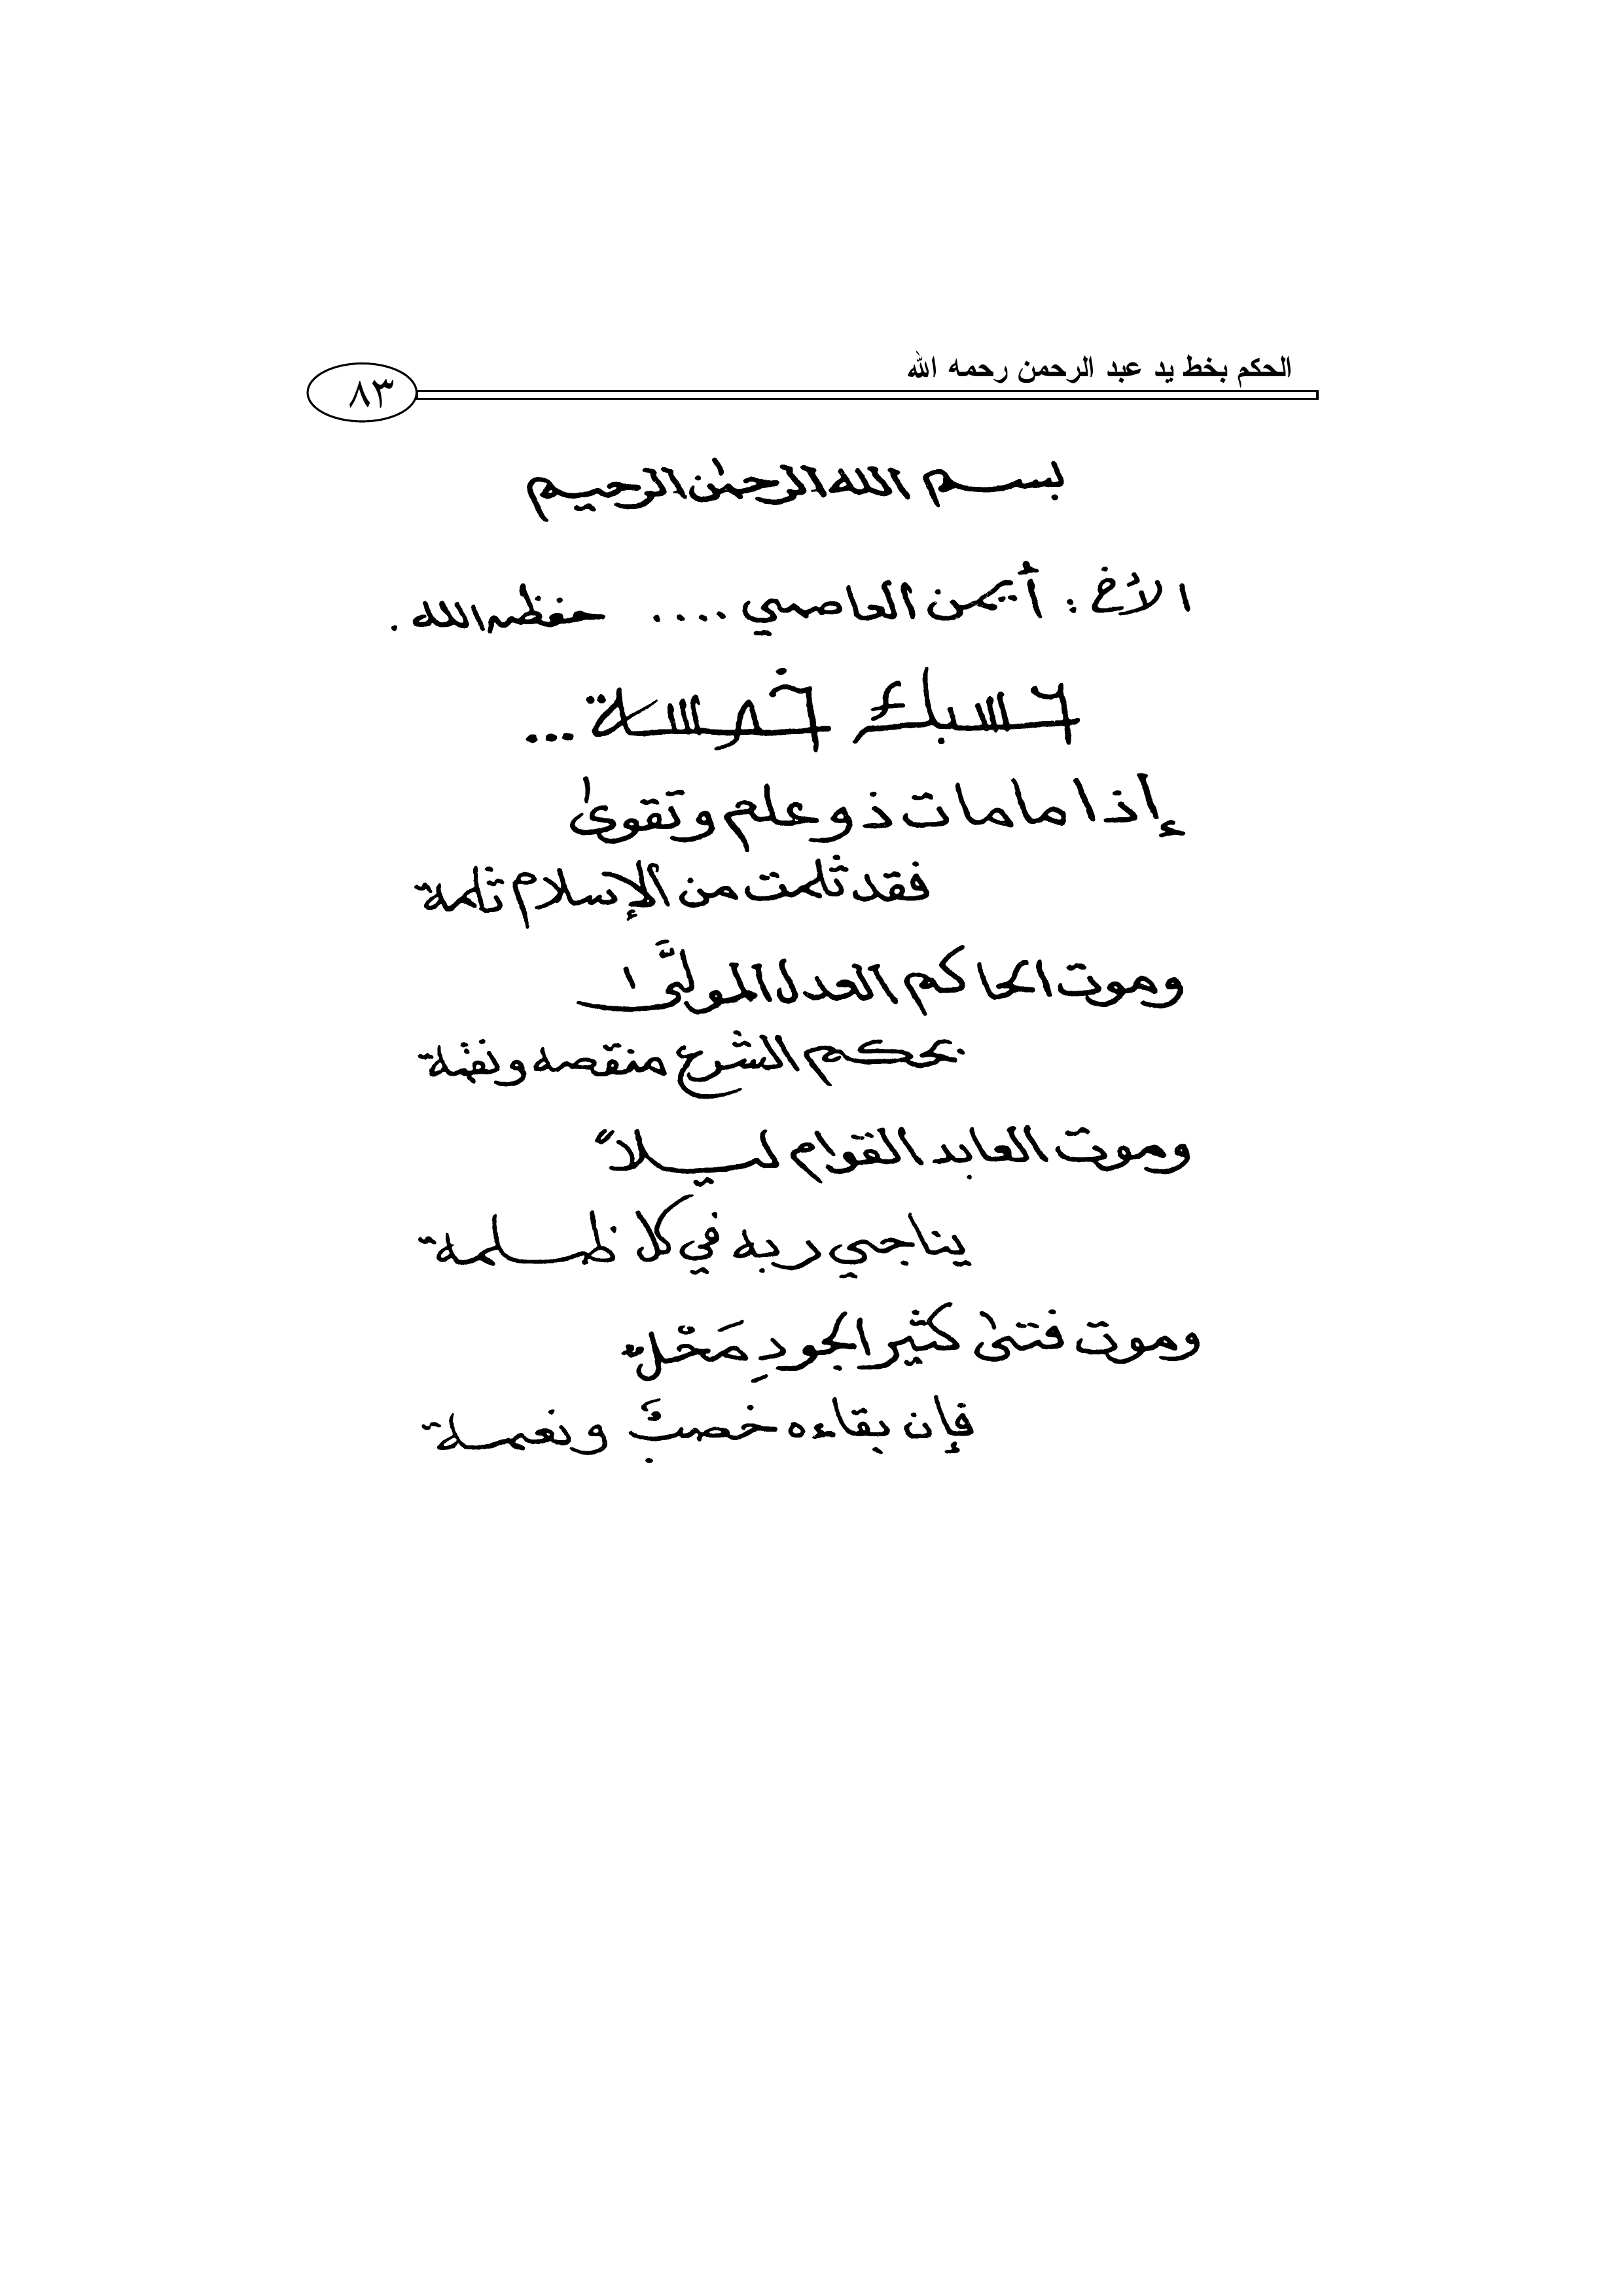 الحكم بخط يد عبد الرحمن رحمه الله
٨٣
بسم الله الرحمٰن الرحيم
الأخ : أيمن العاصمي .... حفظه الله .
حسبك خمسة ...
إذا ما مات ذو علم وتقوىٰ
فقد ثلمت من الإسلام ثلمة
وموت الحاكم العدل المولَّىٰ
بحكم الشرع منقصه ونقمة
وموت العابد القوام ليلاً
يناجي ربه في كل ظلمة
وموت فتىٰ كثير الجودِ مَحْلٌ
فإن بقاءه خصبٌ ونعمة